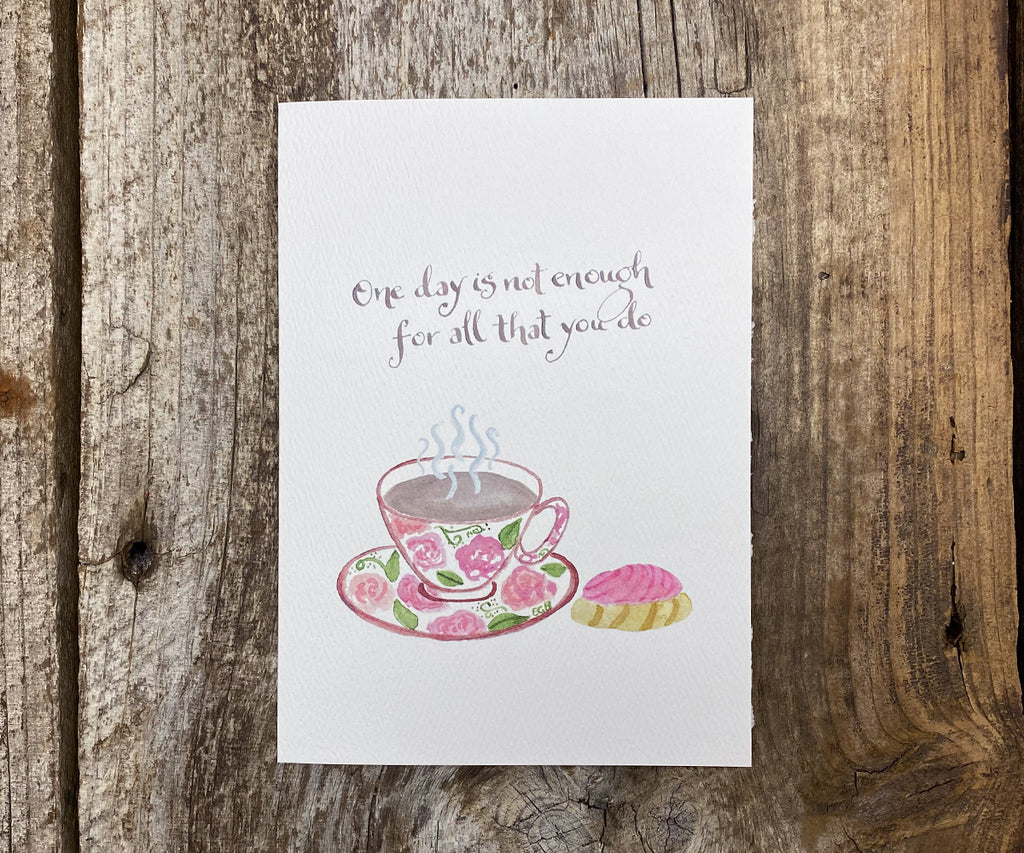 One day is not enough
for all that you do